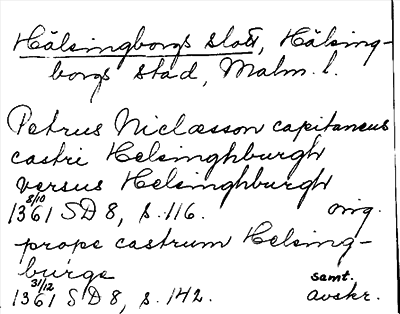 Hälsingborgs slott, Hälsing-
borgs stad, Malm. l.
Petrus Niclæsson capitaneus
castri Helsinghburgh
versus Helsinghburgh
1361 8/10 SD 8, s. 116. orig.
prope castrum Helsing-
burgs
1361 31/12 SD 8, s. 142. samt. avskr.